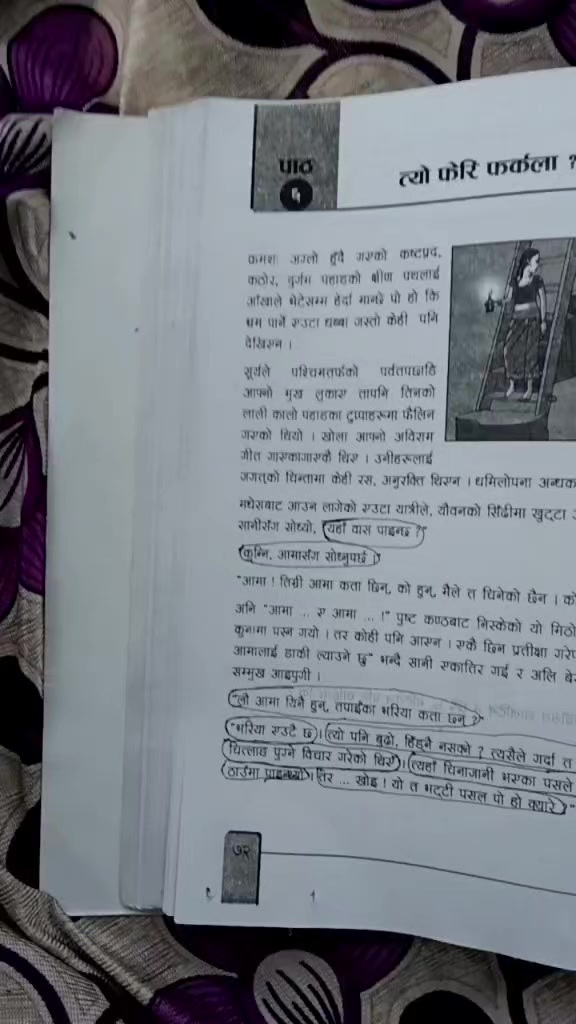 पाठ
५
त्यो फेरि फर्कला ?
क्रमशः अग्लो हुँदै गएको कष्टप्रद,
कठोर, दुर्गम पहाडको क्षीण पथलाई
आँखाले भेटेसम्म हेर्दा मानछे पो हो कि
भ्रम पार्ने एउटा धब्बा जस्तो केही पनि
देखिएन ।
सूर्यले पश्चिमतर्फको पर्वतपछाडि
आफ्नो मुख लुकाए तापनि तिनको
लाली कालो पहाडका टुप्पाहरूमा फैलिन
गएको थियो । खोला आफ्नो अविराम
गीत गाएकागाएकै थिए । उनीहरूलाई
जगत्को चिन्तामा केही रस, अनुरक्ति थिएन । धमिलोपना
मधेसबाट आउन लागेको एउटा यात्रीले, यौवनको सिँढीमा खुट्टा
सानीसँग सोध्यो, यहाँ वास पाइनछ ?"
कुन्नि, आमासँग सोध्नुपर्छ ।
"आमा ! तिम्री आमा कता छिन्, को हुन्, मैले त चिनेको छैन ।
अनि "आमा ... ए आमा ... !" पुष्ट कण्ठबाट निस्केको यो मिठो
कुनामा पस्न गयो । तर कोही पनि आएन । एकै छिन प्रतीक्षा
आमालाई डाकी ल्याउने छु" भन्दै सानी एकातिर गई र अलि
सम्मुख आइपुगी ।
"लौ आमा यिनै हुन्, तपाईंका भरिया कता छन् ?"
"भरिया एउटै छ । त्यो पनि बुढो, हिँड्नै नसक्ने ? त्यसैले गर्दा त
चित्लाङ पुग्ने विचार गरेको थिएँ । त्यहाँ चिनाजानी भएका पसले
ठाउँमा पाइन्थ्यो । तर ... खोइ ! यो त भट्टी पसल पो हो क्यारे ।"
७२